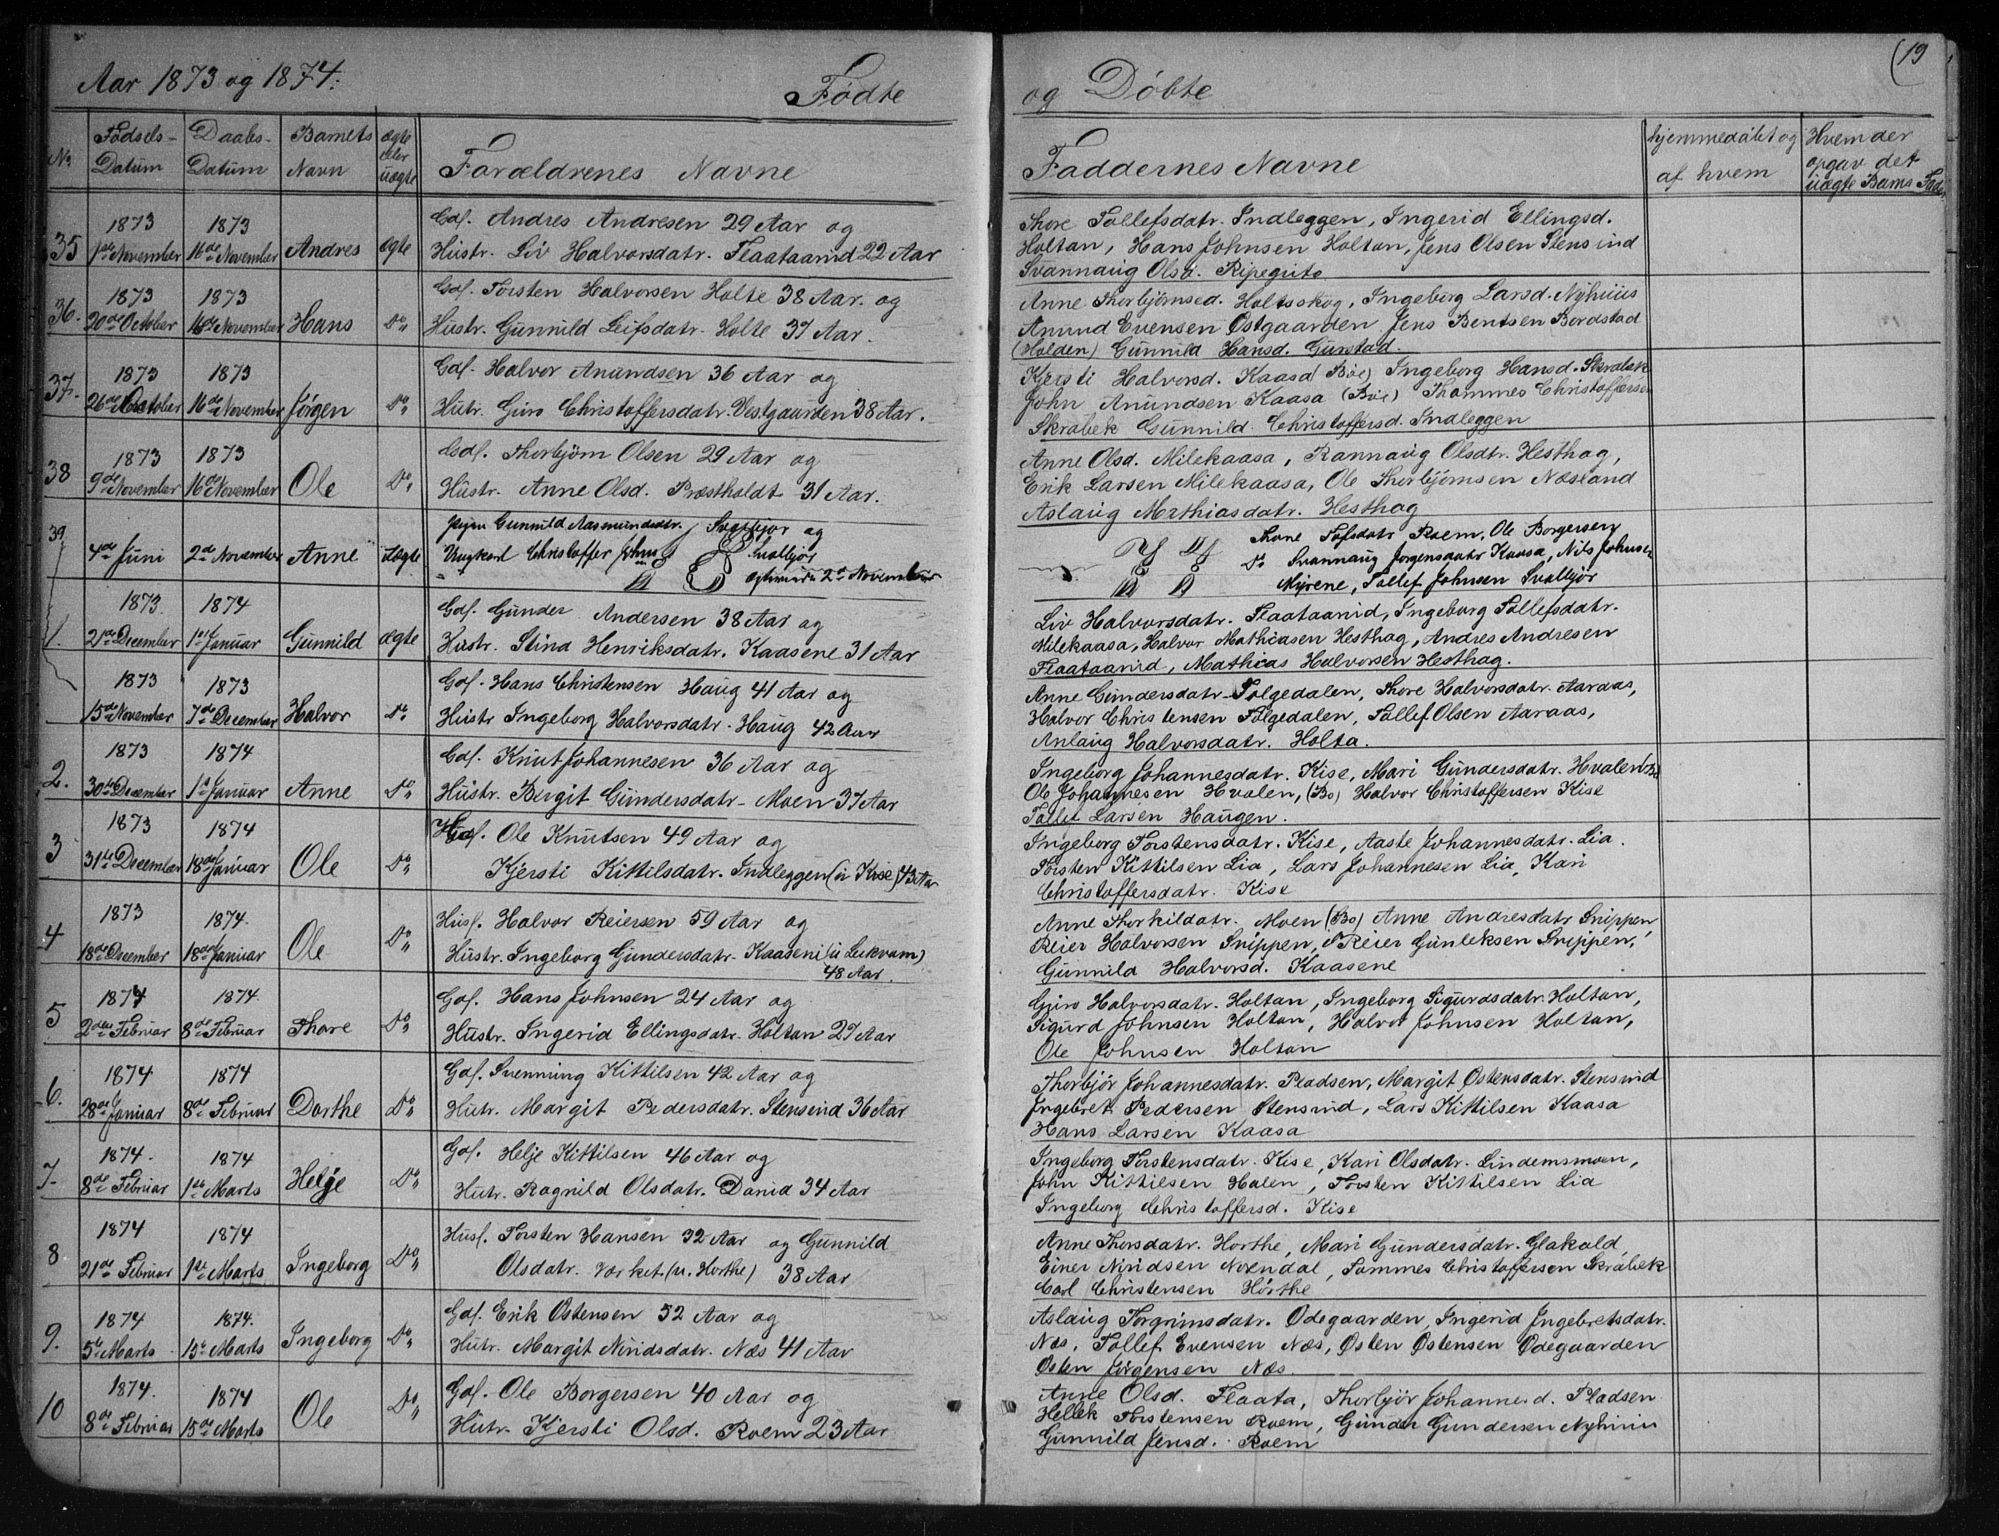 Aar 1873 og 1874.
Fødte
No
Fødsels-
Datum
Daabs-
Datum
Barnets
Navn
ægte
eller
uægte
Forældrenes Navne
35
1873
1ste November
1873
16de November
Andres
ægte
Gdf. Andres Andresen 29 Aar og
Hustr. Liv Halvorsdatr. Flaataanid 22 Aar
36.
1873
20de October
1873
16de November
Hans
Do
Gdf. Torsten Halvorsen Holte 38 Aar og
Hustr. Gunnild Leifsdatr. Holte 37 Aar.
37.
1873
26de October
1873
16de November
Jørgen
Do
Gdf. Halvor Anundsen 36 Aar og
Hutr. Guro Christoffersdatr. Vestgaarden 38 Aar.
38
1873
9de November
1873
16de November
Ole
Do
Gdf. Thorbjørn Olsen 29 Aar og
Hustr. Anne Olsd. Præstholdt 31 Aar.
39
4de Juni
2de November
Anne
uægte
Pigen Gunnild Aasmundsdtr. Svalbjør og
Ungkarl Christoffer Johns Svalbjør
2de November
1.
1873
21de December
1874
1ste Januar
Gunnild
ægte
Gdf. Gunder Andersen 38 Aar og
Hustr. Stina Henriksdatr. Kaasene 31 Aar
1873
15de November
1873
7de December
Halvor
Do
Gdf. Hans Christensen Haug 41 Aar og
Hustr Ingeborg Halvorsdatr. Haug 42 Aar
2.
1873
30te December
1874
1ste Januar
Anne
Do
Gdf. Knut Johannesen 36 Aar og
Hustr. Birgit Gundersdatr. Moen 37 Aar
3
1873
31te December
1874
18de Januar
Ole
Do
Gdf. Ole Knutsen 49 Aar og
Kjersti Kittilsdatr. Indleggen (u Kise) 43 Aar
4
1873
18de December
1874.
18de Januar
Ole
Do
Husf. Halvor Reiersen 59 Aar og
Hustr. Ingeborg Gundersdatr. Kaaseni (u Lekvam)
48 Aar.
5
1874
2den Februar
1874.
8de Februar
Thore
Do
Gdf. Hans Johnsen 24 Aar og
Hustr. Ingerid Ellingsdatr. Holtan 27 Aar
6.
1874
28de Januar
1874
8de Februar
Dorthe
Do
Gdf. Svenning Kittilsen 42 Aar og
Hutr. Margit Pedersdatr. Stensrud 36 Aar
7.
1874.
8de Februar
1874
1ste Marts
Helje
Do
Gdf. Helje Kittilsen 46 Aar og
Hutr. Ragnild Olsdatr. Danid 34 Aar
8
1874
21de Februar
1874
1ste Marts
Ingeborg
Do
Husf. Torsten Hansen 32 Aar og Gunnild
Olsdatr. Værket (u. Horthe) 38 Aar
9.
1874
5te Marts
1874.
15de Marts
Ingeborg
Do
Gdf. Erik Østensen 52 Aar og
Hutr. Margit Niridsdatr. Næs 41 Aar
10
1874.
8de Februar
1874
15de Marts
Ole
Do
Gdf. Ole Borgersen 40 Aar og
Hutr. Kjersti Olsd. Roem 23 Aar
19
og Døbte
Faddernes Navne
hjemmedøbt og
af hvem
Hvem der
opgav det
uægte Barns Fader
Thore Tollefsdatr. Indleggen, Ingerid Ellingsd.
Holtan, Hans Johnsen Holtan, Jens Olsen Stensrud
Svannaug Olsd. Ripegutu
Anne Thorbjørnsed. Holtsskog, Ingeborg Larsd. Nyhuus
Anund Evensen Østgaarden Jens Bentsen Bordstad
(Holden) Gunnild Hansd. Gurstad.
Kjersti Halvorsd. Kaasa (Bøe) Ingeborg Hansd. Skrabek
John Anundsen Kaasa (Bøe) Thommes Christoffersen
Skrabek Gunnild Christoffersd. Indleggen
Anne Olsd. Milekaasa, Rannaug Olsdtr. Hesthag,
Erik Larsen Milekaasa, Ole Thorbjørnsen Næsland
Aslaug Mathiasdatr. Hesthag
Thone Tofsdatr Roem, Ole Borgersen
Do Svannaug Jørgensdatr Kaasa, Nils Johnsen
Myrene, Tollef Johnsen Svalbjør
Liv Halvorsdatr. Flaataanid, Ingeborg Tollefsdatr.
Milekaasa, Halvor Mathiasen Hesthag, Andres Andresen
Flaataanid, Mathias Halvorsen Hesthag.
Anne Gundersdatr. Folgedalen, Thore Halvorsdatr. Aaraas,
Halvor Christensen Folgedalen, Tollef Olsen Aaraas,
Anlaug Halvorsdatr. Holta.
Ingeborg Johannesdatr. Kise, Mari Gundersdatr. Hvalen (Bo)
Ole Johannesen Hvalen, (Bo) Halvor Christoffersen Kise
Tollef Larsen Haugen.
Ingeborg Torstensdatr. Kise, Aaste Johannesdatr. Lia.
Torsten Kittilsen Lia, Lars Johannesen Lia, Kari
Christoffersdatr. Kise
Anne Thorkildatr. Moen (Bo) Anne Andresdatr Snippen,
Reier Halvorsen Snippen, Reier Gunleksen Snippen,
Gunnild Halvorsd. Kaasene
Guro Halvorsdatr. Holtan, Ingeborg Sigurdsdatr. Holtan,
Sigurd Johnsen Holtan, Halvor Johnsen Holtan,
Ole Johnsen Holtan
Thorbjør Johannesdatr. Pladsen, Margit Østensdatr. Stensrud
Ingebret Pedersen Stensrud, Lars Kittilsen Kaasa
Hans Larsen Kaasa
Ingeborg Torstensdatr. Kise, Kari Olsdatr. Lindemsmoen,
John Kittilsen Halen, Torsten Kittilsen Lia
Ingeborg Christoffersd. Kise
Anne Thorsdatr. Horthe, Mari Gundersdatr. Glakald,
Einer Niridsen Noendal, Tommes Christoffersen Skrabek
Carl Christensen Hørthe
Aslaug Torgrimsdatr. Ødegaarden, Ingerid Ingebretsdatr.
Næs, Tollef Evensen Næs, Østen Østensen Ødegaarden
Østen Jørgensen Næs.
Anne Olsd. Flaata, Thorbjør Johannesd. Pladsen
Hellek Torstensen Roem, Gunder Gundersen Nyhuus
Gunnild Jensd. Roem